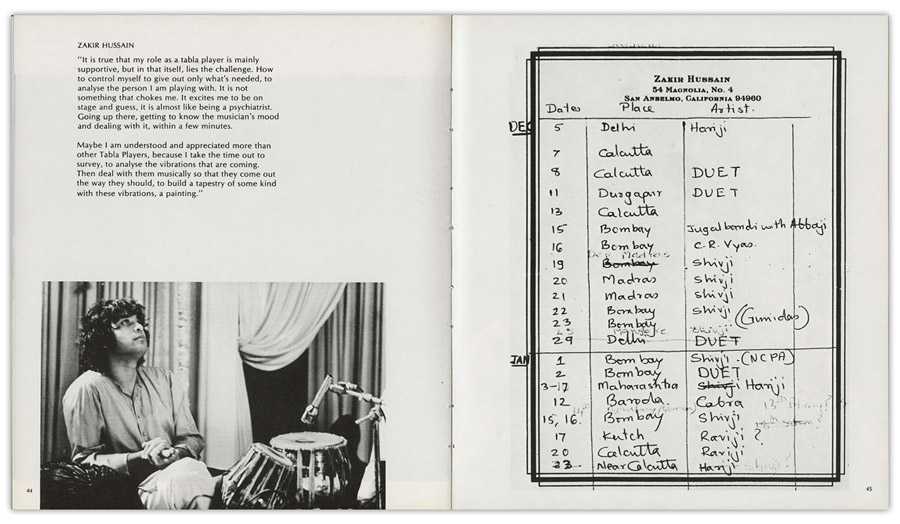 ZAKIR HUSSAIN
"It is true that my role as a tabla player is mainly
supportive, but in that itself, lies the challenge. How
to control myself to give out only what's needed, to
analyse the person I am playing with. It is not
something that chokes me. It excites me to be on
stage and guess, it is almost like being a psychiatrist.
Going up there, getting to know the musician's mood
and dealing with it, within a few minutes.
Maybe I am understood and appreciated more than
other Tabla Players, because I take the time out to
survey, to analyse the vibrations that are coming.
Then deal with them musically so that they come out
the way they should, to build a tapestry of some kind
with these vibrations, a painting."
44
ZAKIR HUSSAIN
54 MAGNOLIA, NO. 4
SAN ANSELMO, CALIFORNIA 94960
Dates Place Artist.
DEC 5 Delhi Hariji
7 Calcutta
8 Calcutta DUET
11 Durgapur DUET
13 Calcutta
15 Bombay Jugalbandi with Abbaji
16 Bombay C.R. Vyas.
Madras
19 Bombay Shivji
20 Madras Shivji
21 Madras Shivji
22 Bombay Shivji
23 Bombay (Gunidas)
29 Delhi DUET
JAN 1 Bombay Shivji. (NCPA)
2 Bombay DUET
3-17 Maharashtra Shivji Hariji
12 Baroda Cabra
15, 16. Bombay Shivji
17 Kutch Raviji ?
20 Calcutta Raviji
23 Near Calcutta Hariji
45